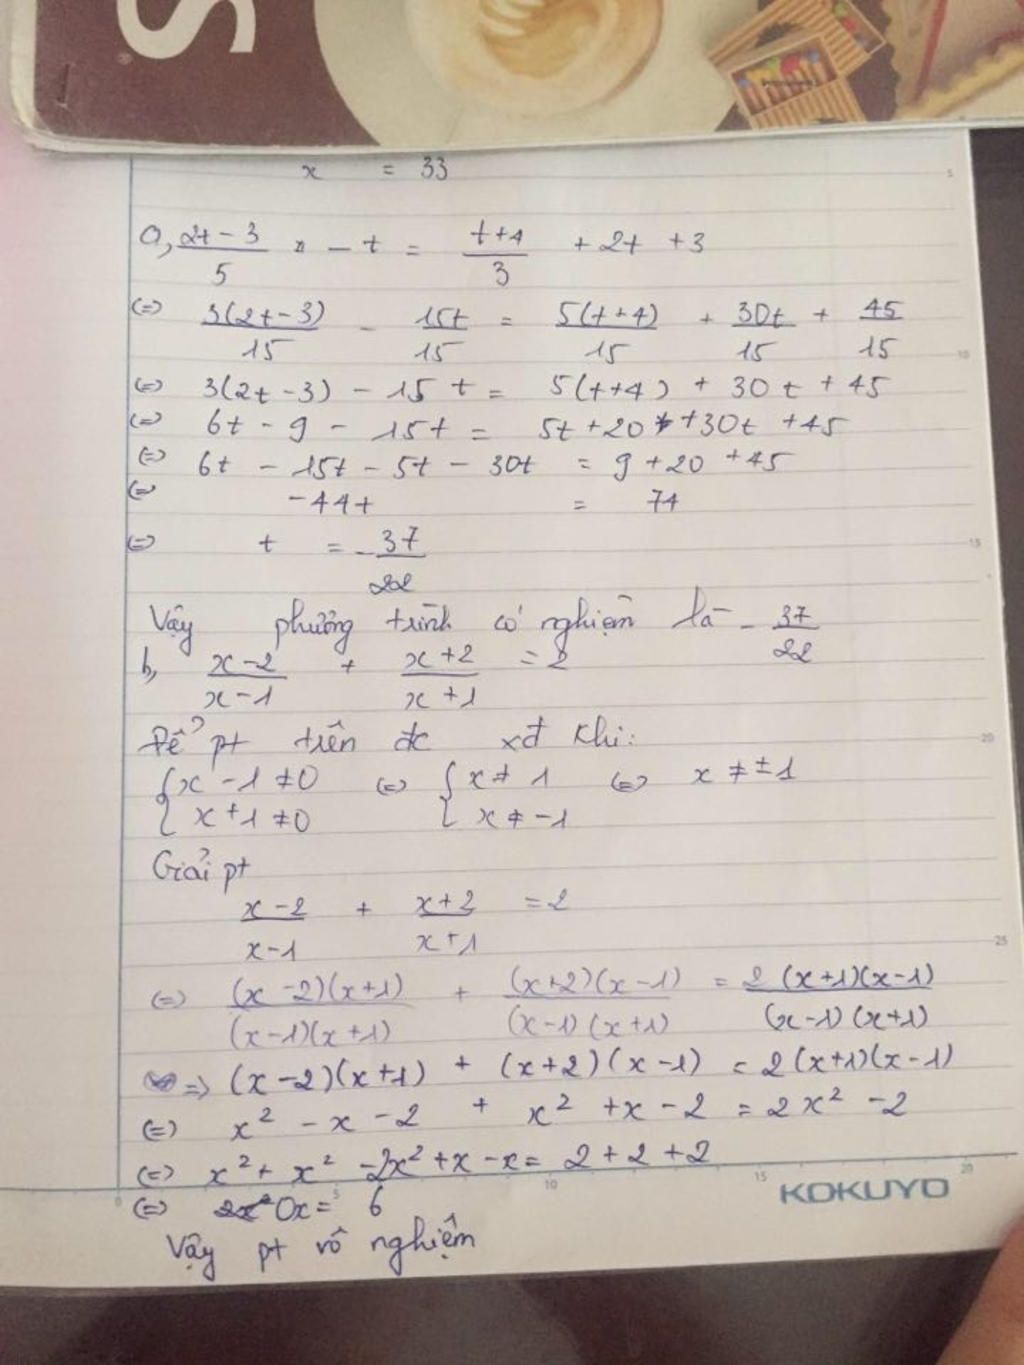 S
®
x = 33
a, 2t - 3 / 5 - t = t+4 / 3 + 2t + 3
(=) 3(2t-3) / 15 - 15t / 15 = 5(t+4) / 15 + 30t / 15 + 45 / 15
(=) 3(2t-3) - 15t = 5(t+4) + 30t + 45
(=) 6t - 9 - 15t = 5t + 20 + 30t + 45
(=) 6t - 15t - 5t - 30t = 9 + 20 + 45
(=) -44t = 74
(=) t = - 37 / 22
Vậy phương trình có nghiệm là - 37 / 22
b, x-2 / x-1 + x+2 / x+1 = 2
Để pt trên đc xđ khi:
{ x - 1 ≠ 0 (=) { x ≠ 1 (=) x ≠ ± 1
x + 1 ≠ 0 x ≠ -1
Giải pt
x-2 / x-1 + x+2 / x+1 = 2
(=) (x-2)(x+1) / (x-1)(x+1) + (x+2)(x-1) / (x-1)(x+1) = 2(x+1)(x-1) / (x-1)(x+1)
=> (x-2)(x+1) + (x+2)(x-1) = 2(x+1)(x-1)
(=) x² - x - 2 + x² + x - 2 = 2x² - 2
(=) x² + x² - 2x² + x - x = 2 + 2 + 2
(=) 0x = 6
Vậy pt vô nghiệm
KOKUYO
5
10
15
20
25
0 5 10 15 20